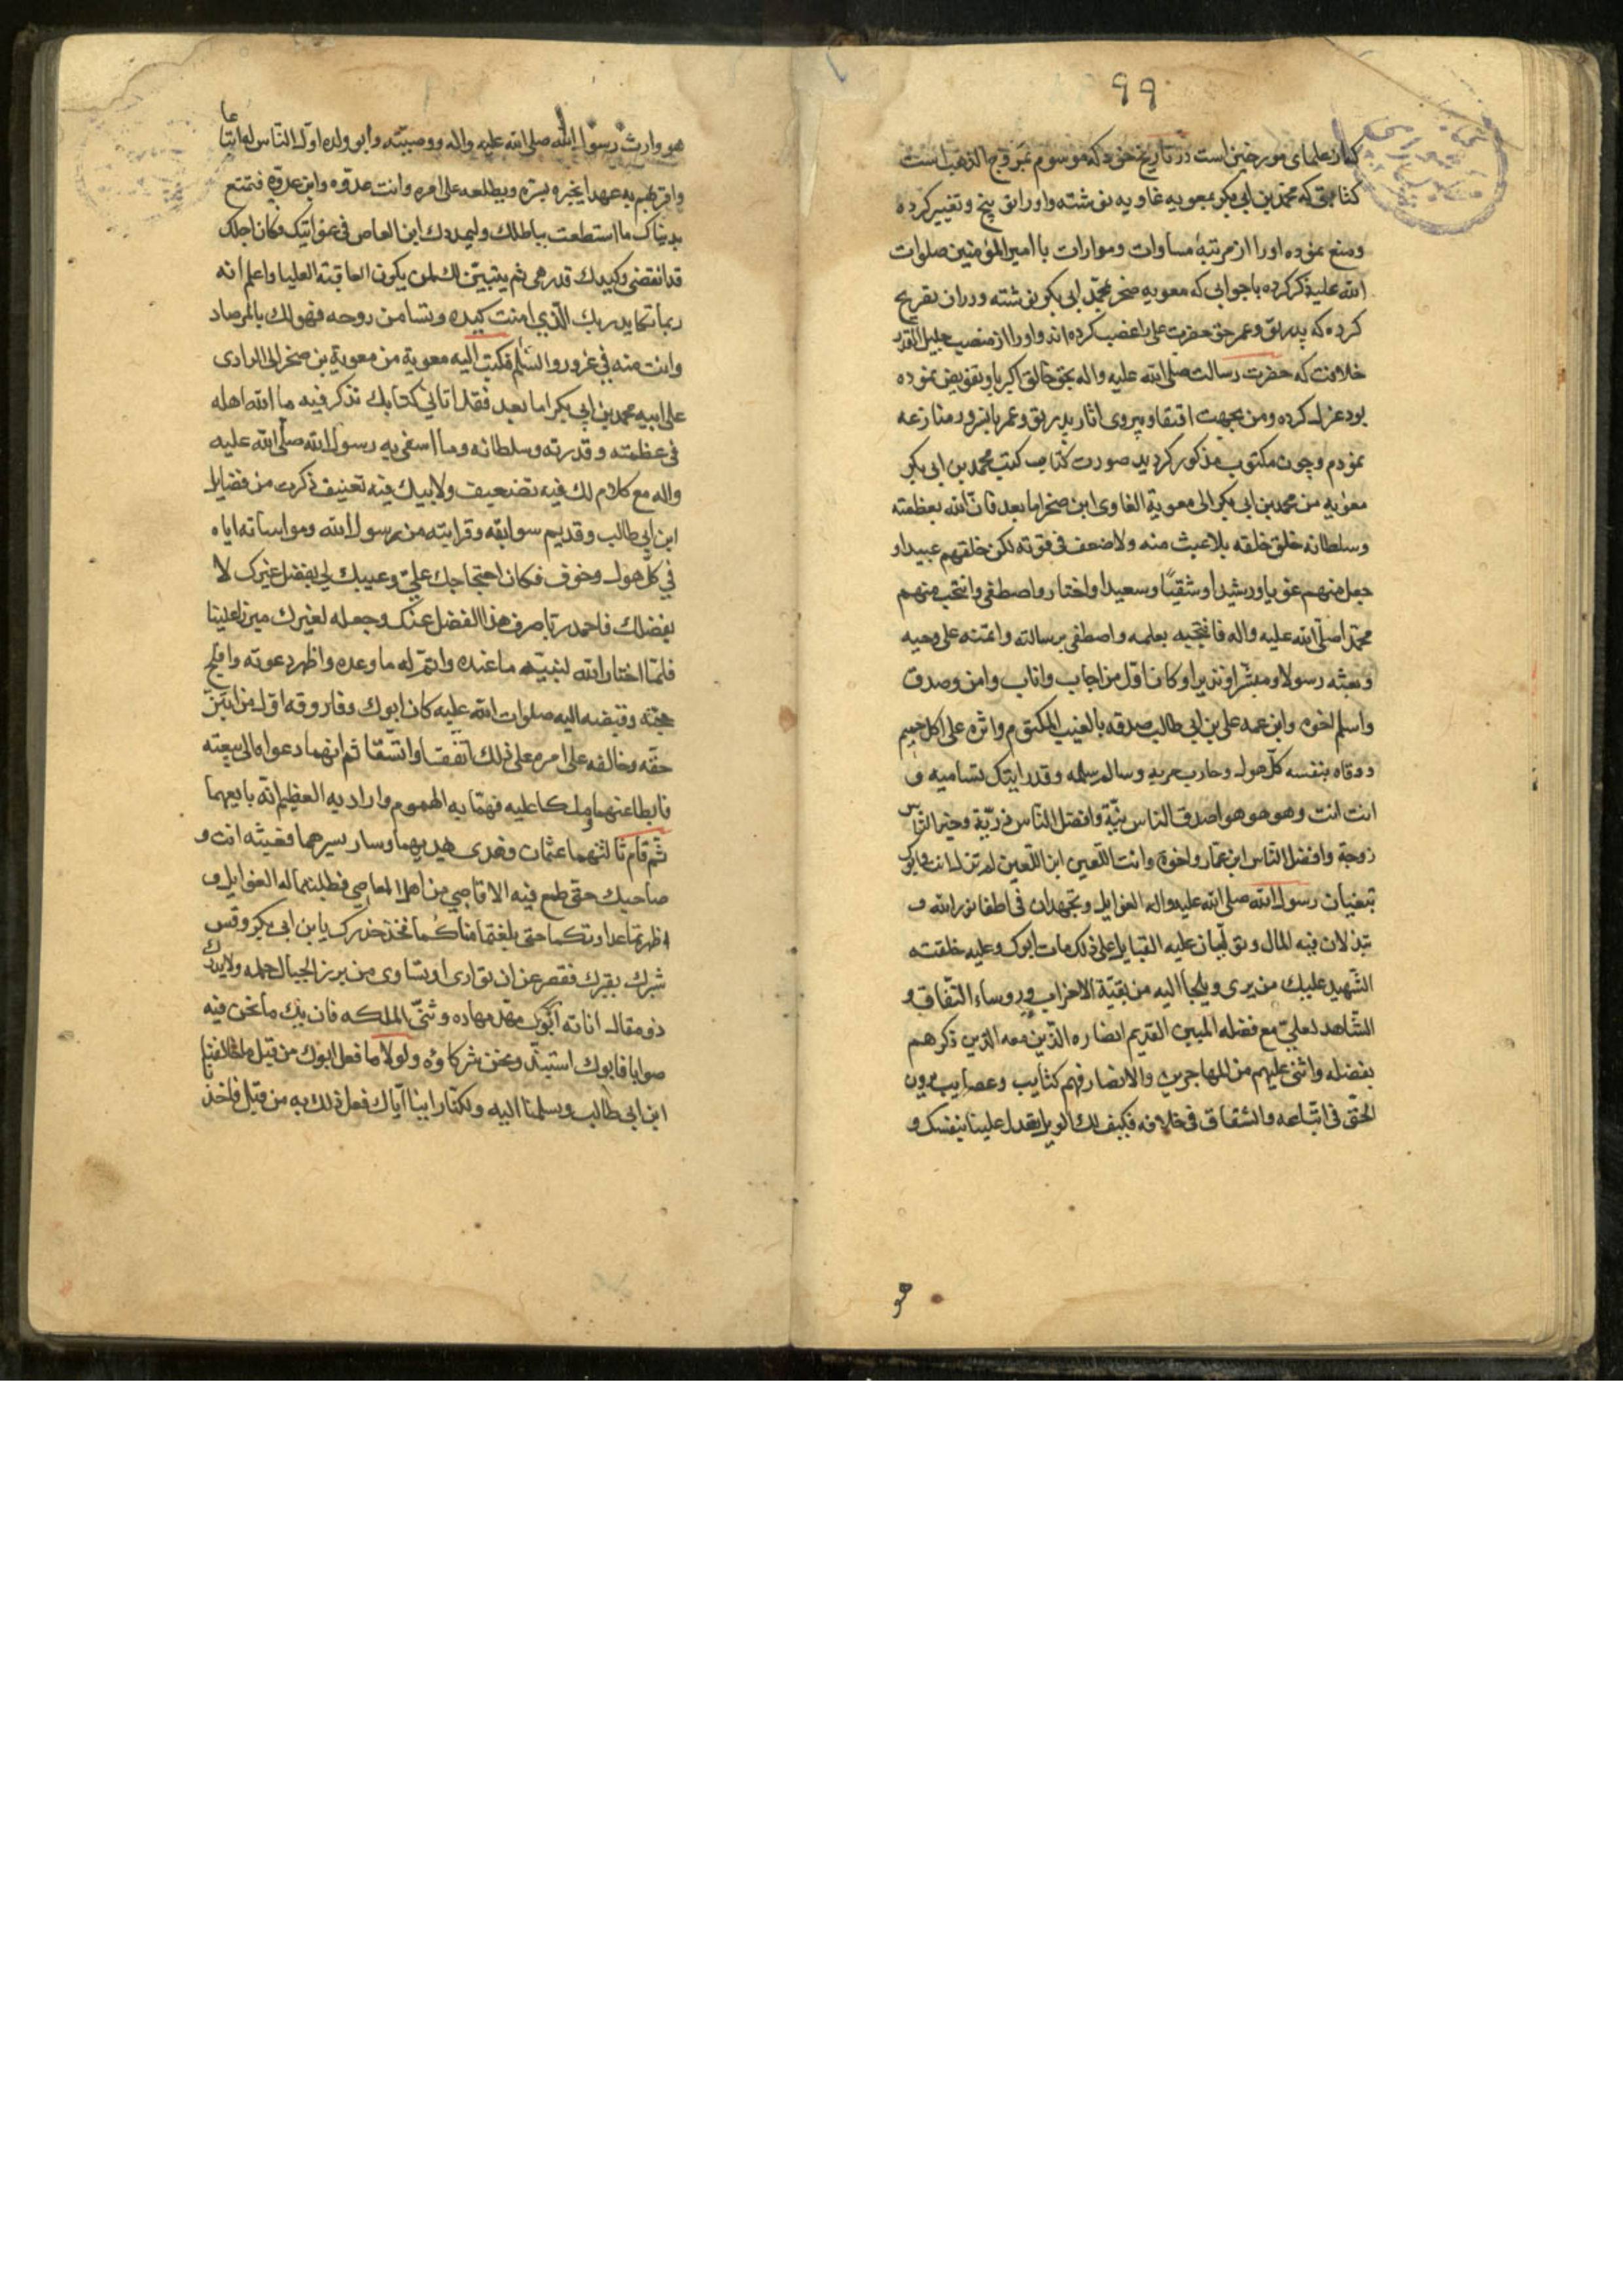 ۹۹
کبار علمای مورخین است در تاریخ خود که موسوم بمروج الذهب است
کتابتی که محمد بن ابی بکر بمعویه غاویه نوشته و او را توبیخ و تغییر کرده
و منع نموده او را از مرتبهٔ مساوات و موازات با امیر المؤمنین صلوات
الله علیه ذکر کرده با جوابی که معویه صخر بمحمد ابی بکر نوشته و در ان تصریح
کرده که پدر تو و عمر حق حضرت علی را غصب کرده اند و او را از منصب جلیل القدر
خلافت که حضرت رسالت صلی الله علیه واله بحق خالق اکبر باو تفویض نموده
بود عزل کرده و من بجهت اقتفا و پیروی اثار پدر تو و عمر با
نمودم و چون مکتوب مذکور کردید صورت کتاب کتب محمد بن ابی بکر
معویه من محمد بن ابی بکر الی معویة الغاوی ابن صخر اما بعد فان الله بعظمته
وسلطانه خلق خلقه بلا عبث منه ولا ضعف فی قوته لکن خلقهم عبیدا و
جعل منهم غویا ورشیدا وشقیّا وسعیدا واختار واصطفی وانتخب منهم
محمّدا صلی الله علیه واله فانتجبه بعلمه واصطفی برسالته وائتمنه علی وحیه
وبعثه رسولا ومبشّرا ونذیرا وکان اوّل من اجاب واناب وامن وصدق
واسلم اخوه وابن عمه علی بن ابی طالب صدقه بالغیب المکتوم واثره علی کل حمیم
ووقاه بنفسه کلّ هول وحارب حربه وسالم سلمه وقد رایتک تسامیه و
انت انت وهو هو هو اصدق الناس نیّة وافضل الناس ذریّة وخیر الناس
زوجة وافضل الناس ابن عمّ واخوة وانت اللّعین ابن اللّعین لم تزل انت وابوک
تبغیان رسول الله صلی الله علیه واله الغوایل وتجهدان فی اطفا نور الله و
تبذلان فیه المال وتولّبان علیه القبایل علی ذلک مات ابوک وعلیه خلفته
الشّهید علیک من یری ویلجا الیه من بقیّة الاحزاب وروساء النّفاق و
الشّاهد لعلیّ مع فضله المبین القدیم انصاره الّذین معه الذین ذکرهم
بفضله واثنی علیهم من المهاجرین والانصار فهم کتایب وعصایب یرون
الحقّ فی اتّباعه والشقاق فی خلافه فکیف لک الویل تعدل علینا بنفسک و
هو
هو وارث رسول الله صلی الله علیه واله ووصیّته وابو ولده اوّل الناس له اتباعا
واقربهم به عهدا یخبره بسرّه ویطلعه علی امره وانت عدوّه وابن عدوّه فتمتع
بدنیاک ما استطعت بباطلک ولیمددک ابن العاص فی غوایتک فکان اجلک
قد انقضی وکیدک قد وهی ثم یتبیّن لک لمن یکون العاقبة العلیا واعلم انه
ربما تکاید ربک الّذی امنت کیده وتسا من روحه فهو لک بالمرصاد
وانت منه فی غرور والسّلم فکتب الیه معویة من معویة بن صخر الی الزاری
علی ابیه محمد بن ابی بکر اما بعد فقد اتانی کتابک تذکر فیه ما الله اهله
فی عظمته وقدرته وسلطانه وما اسفی به رسول الله صلّی الله علیه
واله مع کلام لک فیه تضعیف ولابیک فیه تعنیف ذکرت من فضایل
ابن ابی طالب وقدیم سوابقه وقرابته من رسول الله ومواساته ایاه
فی کلّ هول وخوف فکان احتجاجک علیّ وعیبک لی بفضل غیرک لا
بفضلک فاحمد ربّا صرف هذا الفضل عنک وجعله لغیرک
فلمّا اختار الله لنبیّه ما عنده واتمّ له ما وعده واظهر دعوته وافلج
حجّته وقبضه الیه صلوات الله علیه کان ابوک وفاروقه اوّل من ابتزّ
حقّه وخالفه علی امره علی ذلک اتّفقا واتّسقا ثم انهما دعواه الی بیعته
فابطا عنهما وتلکا علیه فهمّا به الهموم وارادا به العظیم انّه بایعهما
ثم قام ثالثهما عثمان وهدی هدیهما وسار بسیرهما فعیبته انت و
صاحبک حتی طمع فیه الاقاصی من اهل المعاصی فطلبتما له الغوایل و
اظهرتما عداوتکما حتی بلغتما مناکما فخذ حذرک یا بن ابی بکر وقس
شبرک بفترک فقصر عن ان توازی او تساوی من یزن الجبال حمله ولا یدرک
ذو مقال اناته ابوک مهّد مهاده وثنّی الملکه فان یک ما نحن فیه
صوابا فابوک استبدّ ونحن شرکاوه ولولا ما فعل ابوک من قبل ما خالفنا
ابن ابی طالب وسلمنا الیه ولکنّا راینا ایّاک فعل ذلک به من قبل فاخذنا